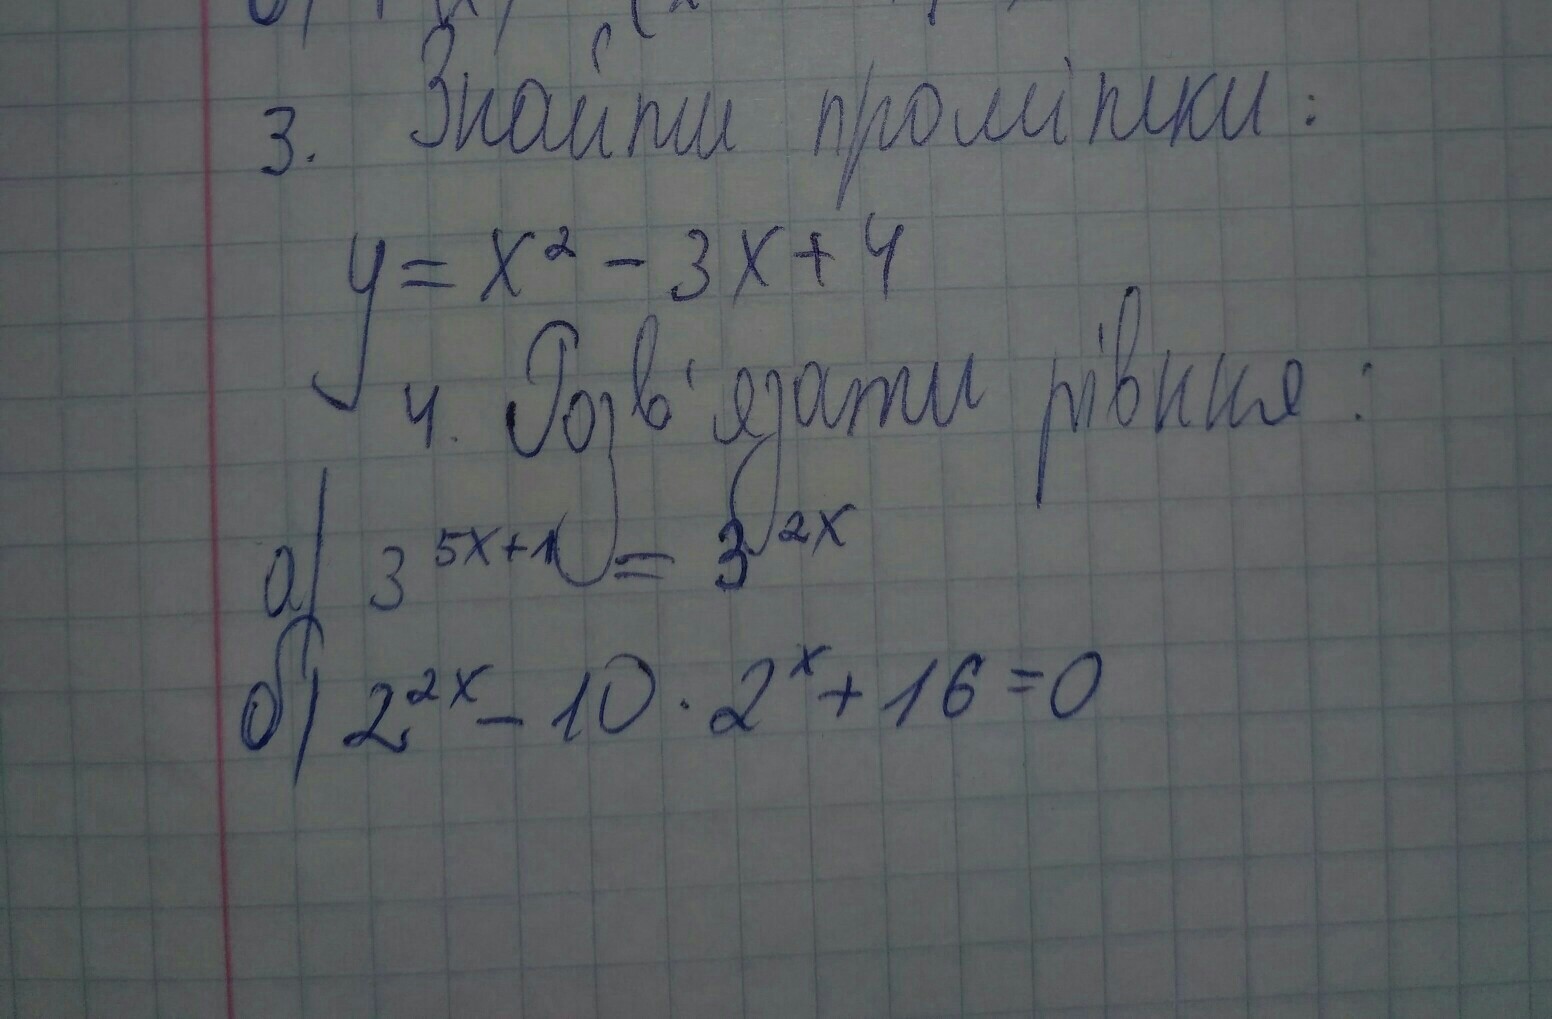 3. Знайти проміжки:
y = x² - 3x + 4
4. Розв'язати рівння:
а) 3^{5x+1} = 3^{2x}
б) 2^{2x} - 10 · 2^x + 16 = 0